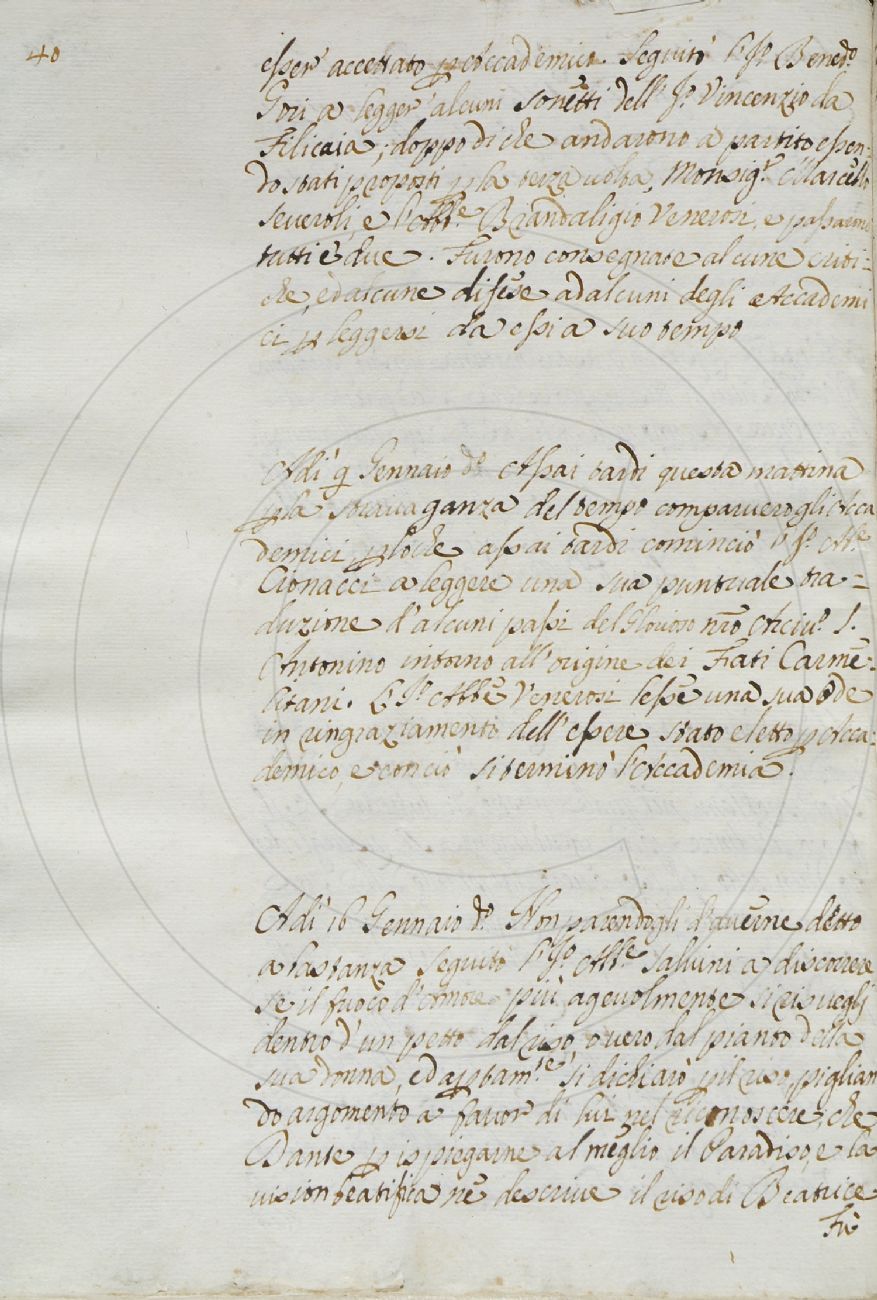 40
esser' accettato p Accademico. Seguitò l' Sr. Bened.o
Gori a legger' alcuni sonetti dell' Sr. Vincenzio da
Filicaia; doppo di che andarono a partito essen-
do stati proposti p la terza volta, Monsig.r Marcello
Severoli, e l'Abb.e Brandaligio Venerosi, e passarono
tutti e due. Furono consegnate alcune criti=
che, ed alcune difese ad alcuni degli Accademi
ci p leggersi da essi a suo tempo
Adi 9 Gennaio d.o Assai tardi questa mattina
p la stravaganza del tempo comparvero gli Acca
demici p loche assai tardi cominciò l' Sr. Ab.e
Cionacci a leggere una sua puntuale tra=
duzione d'alcuni passi del Glorioso nro Arciv.o S.
Antonino intorno all' origine dei Frati Carme=
litani. L' Sr. Abbe Venerosi lesse una sua Ode
in ringraziamento dell' essere stato eletto p Acca=
demico, e con ciò si terminò l'Accademia.
Adi 16 Gennaio d.o Non parendogli d'averne detto
a bastanza seguitò l' Sr. Ab.e Salvini a discorrere
se il fuoco d'Amore più agevolmente si risvegli
dentro d'un petto dal riso, overo dal pianto della
sua donna, ed aptam.te si dichiarò p il riso, piglian
do argomento a favor di lui nel riconoscere, che
Dante p ispiegarne al meglio il Paradiso, e la
vision beatifica ne descrive il riso di Beatrice
Fù